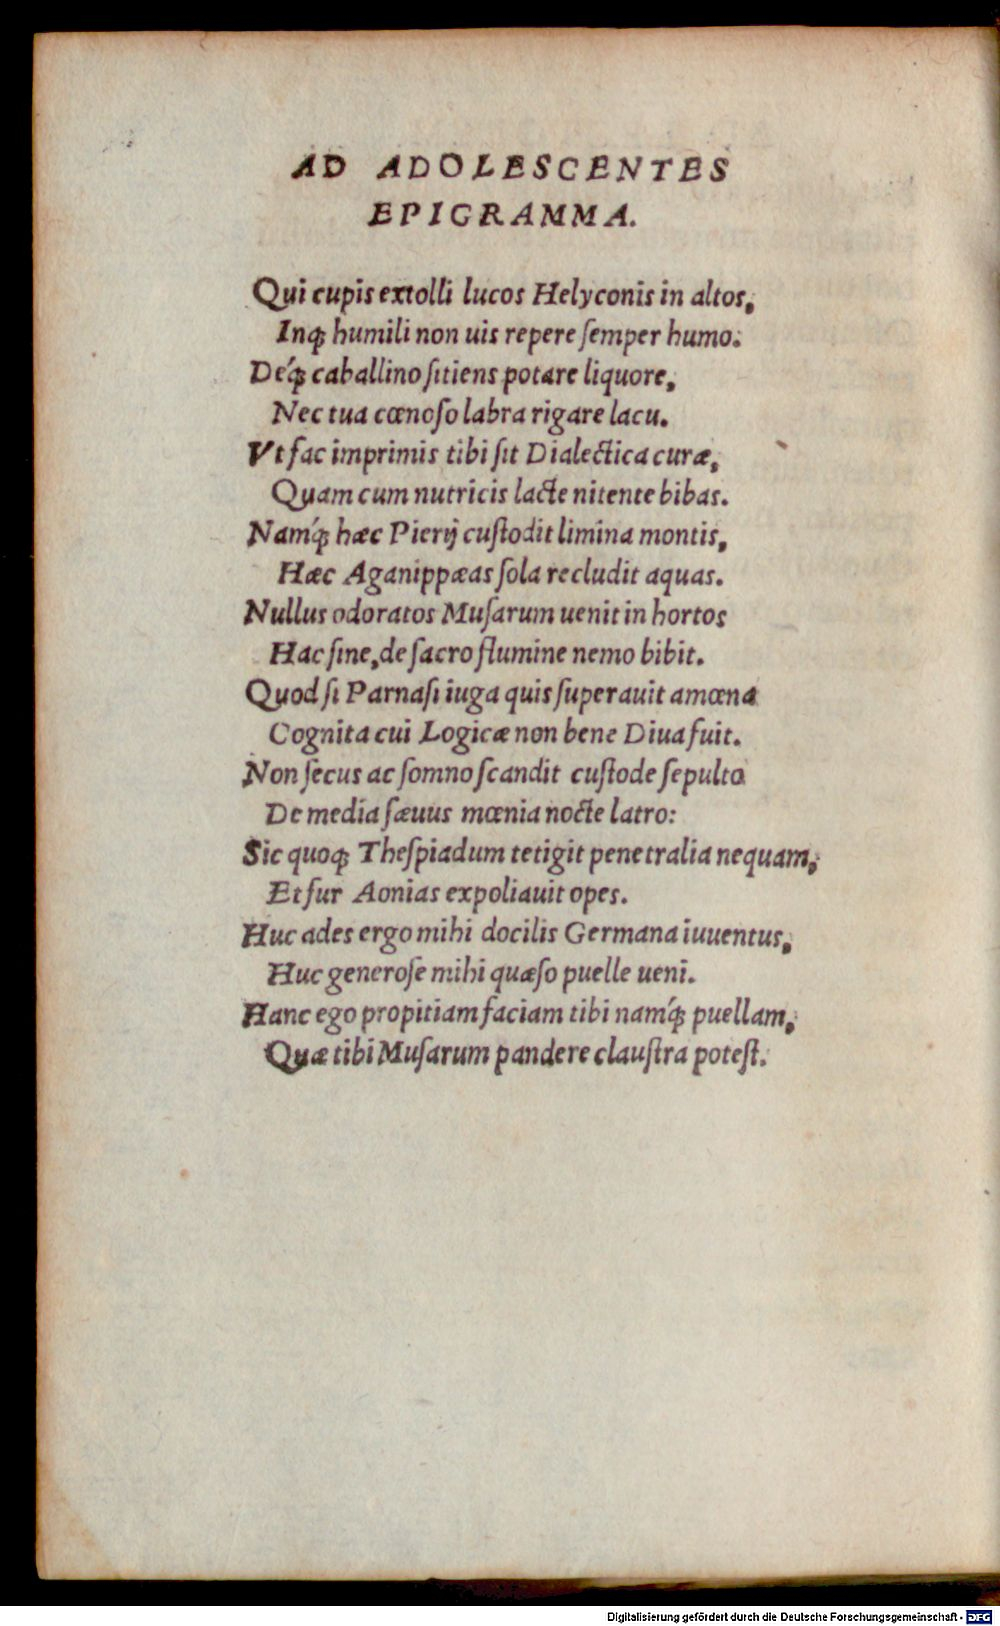 AD ADOLESCENTES
EPIGRAMMA.
Qui cupis extolli lucos Helyconis in altos,
Inq; humili non uis repere ſemper humo:
Deq́; caballino ſitiens potare liquore,
Nec tua cœnoſo labra rigare lacu.
Vt fac imprimis tibi ſit Dialectica curæ,
Quam cum nutricis lacte nitente bibas.
Namq́; hæc Pierij cuſtodit limina montis,
Hæc Aganippæas ſola recludit aquas.
Nullus odoratos Muſarum uenit in hortos
Hac ſine, de ſacro flumine nemo bibit.
Quod ſi Parnaſi iuga quis ſuperauit amœna
Cognita cui Logicæ non bene Diua fuit.
Non ſecus ac ſomno ſcandit cuſtode ſepulto
De media ſæuus mœnia nocte latro:
Sic quoq; Theſpiadum tetigit penetralia nequam,
Et fur Aonias expoliauit opes.
Huc ades ergo mihi docilis Germana iuuentus,
Huc generoſe mihi quæſo puelle ueni.
Hanc ego propitiam faciam tibi namq́; puellam,
Quæ tibi Muſarum pandere clauſtra poteſt.
Digitalisierung gefördert durch die Deutsche Forschungsgemeinschaft - DFG